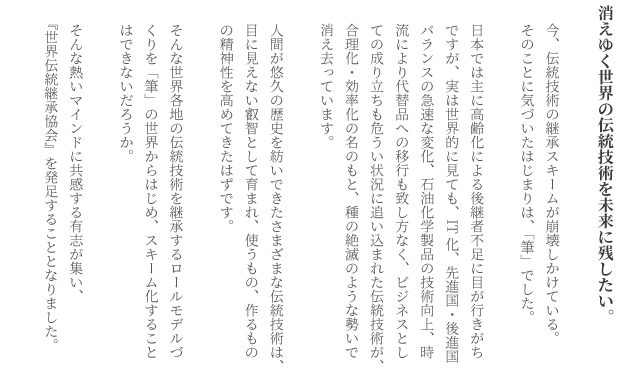 消えゆく世界の伝統技術を未来に残したい。
今、伝統技術の継承スキームが崩壊しかけている。
そのことに気づいたはじまりは、「筆」でした。
日本では主に高齢化による後継者不足に目が行きがち
ですが、実は世界的に見ても、IT化、先進国・後進国
バランスの急速な変化、石油化学製品の技術向上、時
流により代替品への移行も致し方なく、ビジネスとし
ての成り立ちも危うい状況に追い込まれた伝統技術が、
合理化・効率化の名のもと、種の絶滅のような勢いで
消え去っています。
人間が悠久の歴史を紡いできたさまざまな伝統技術は、
目に見えない叡智として育まれ、使うもの、作るもの
の精神性を高めてきたはずです。
そんな世界各地の伝統技術を継承するロールモデルづ
くりを「筆」の世界からはじめ、スキーム化すること
はできないだろうか。
そんな熱いマインドに共感する有志が集い、
『世界伝統継承協会』を発足することとなりました。